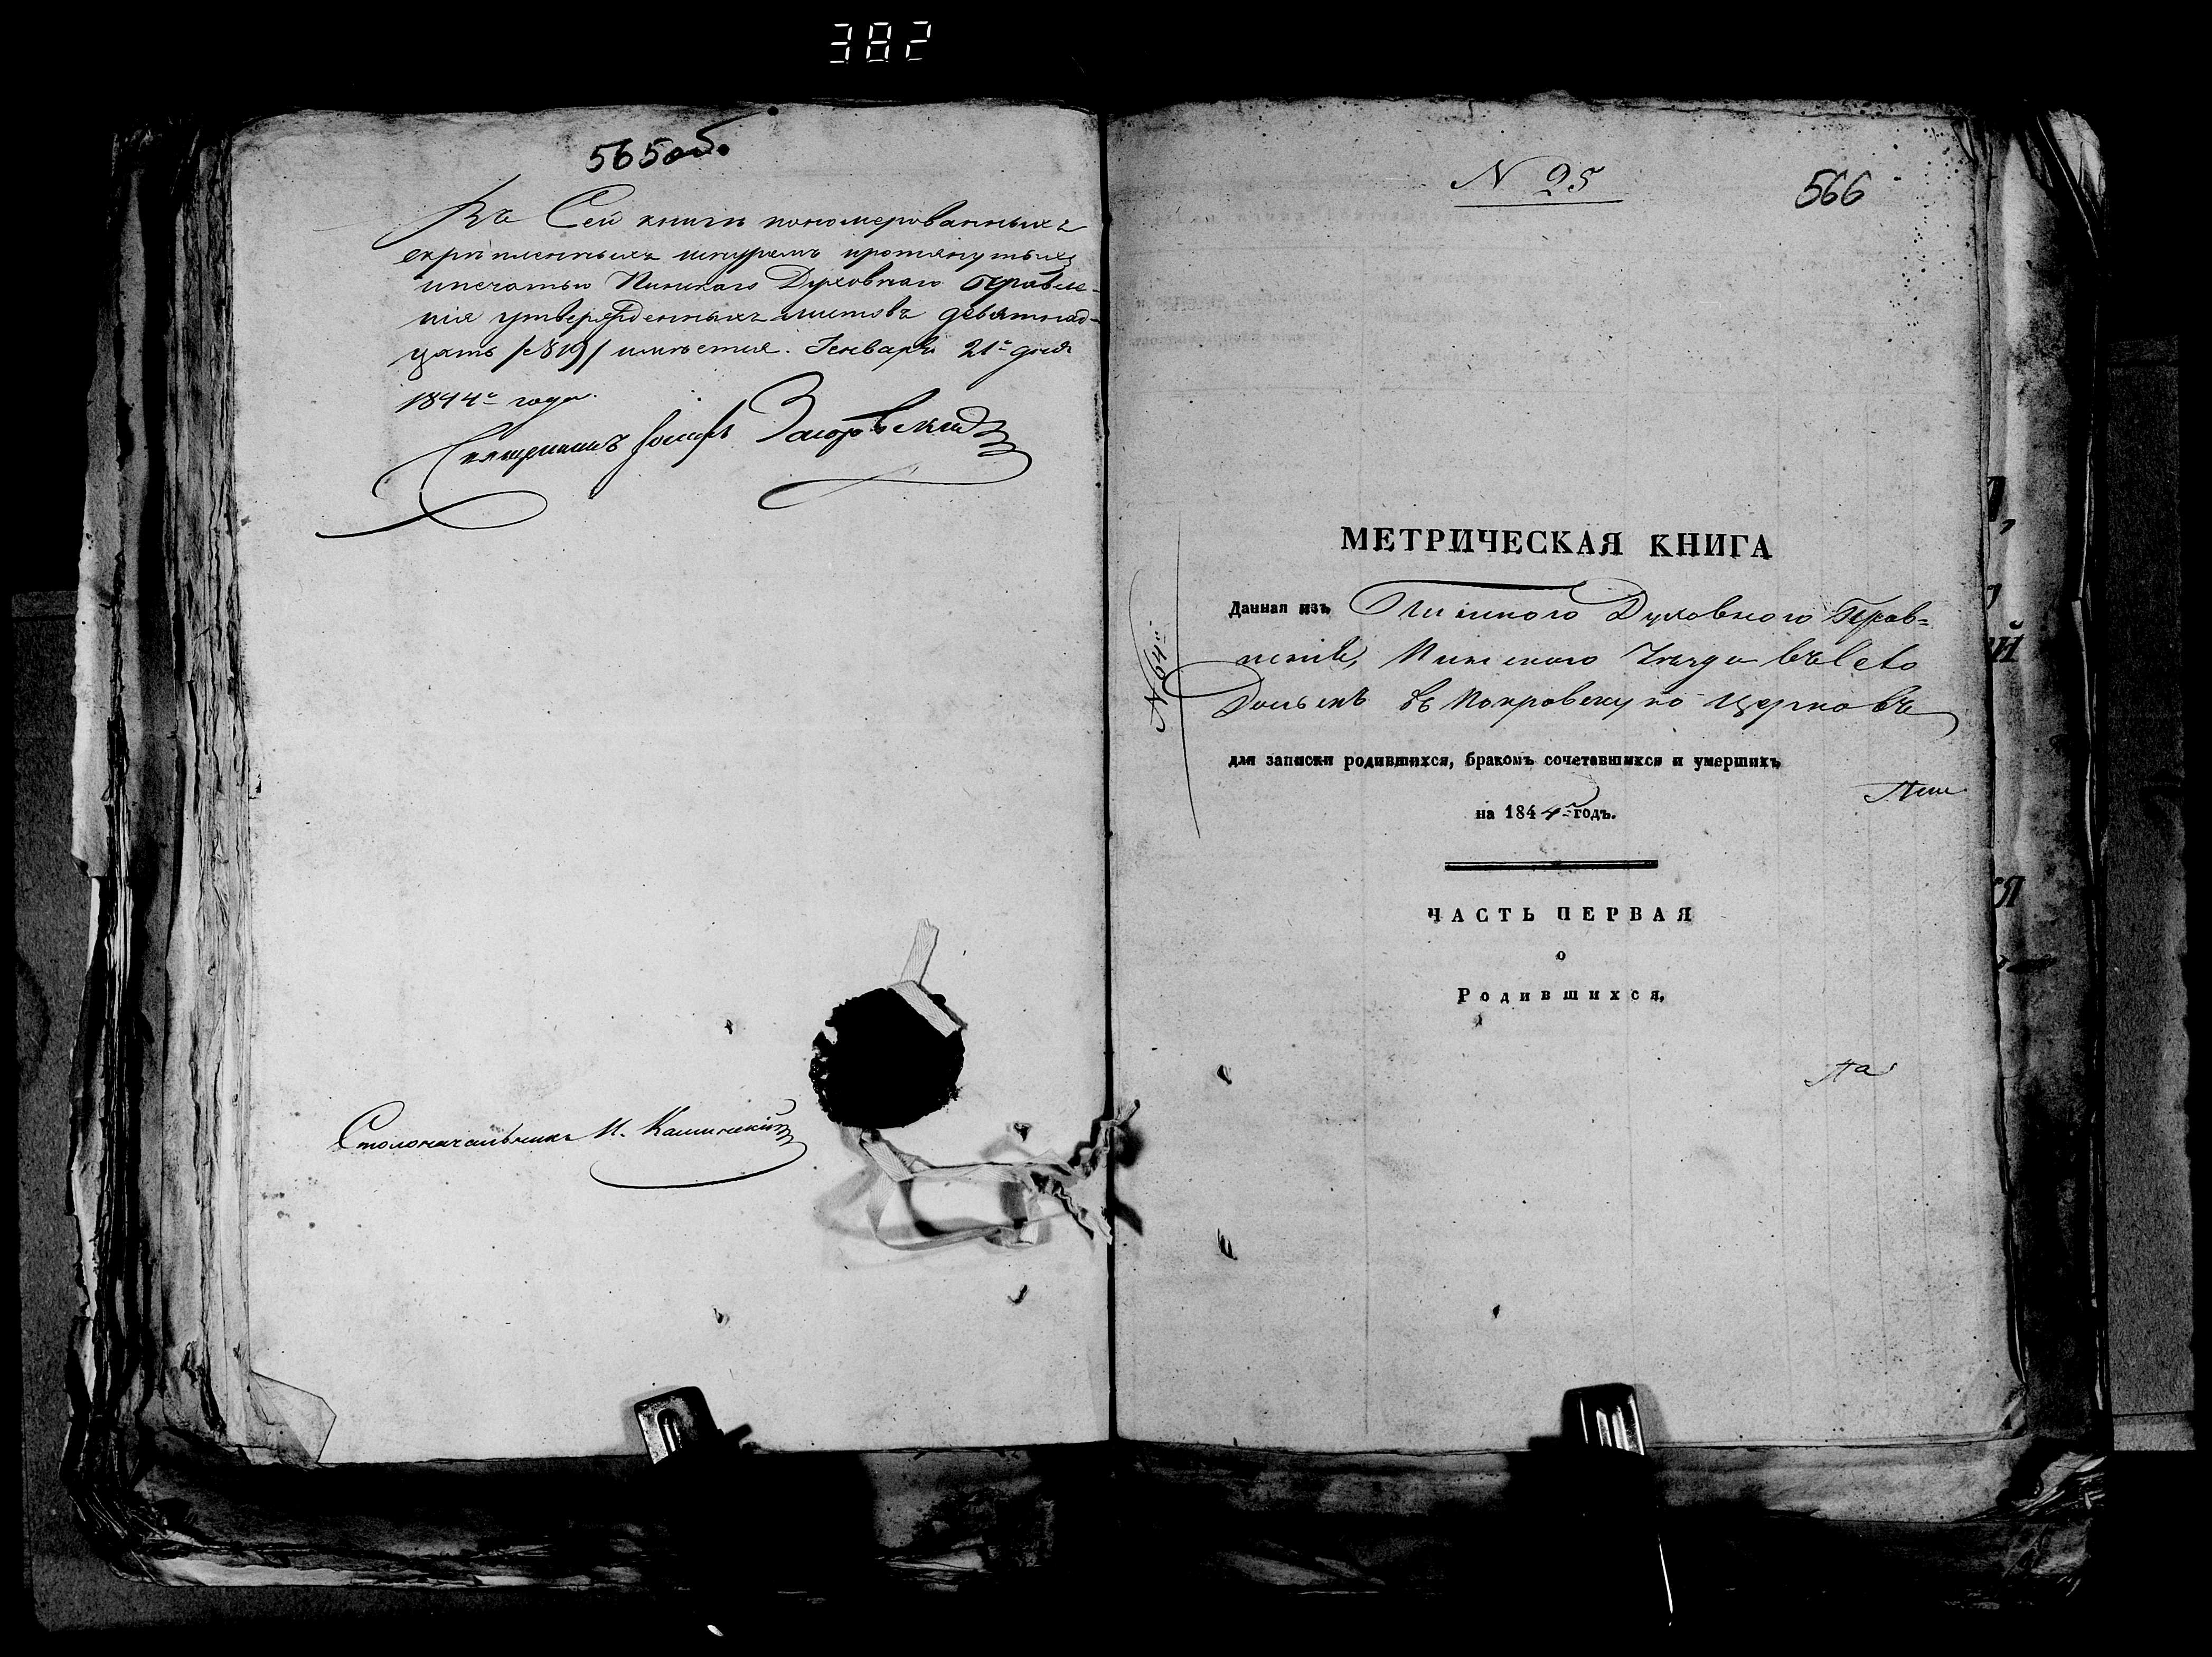 382
565 об.
Въ Сей книги пономерованныхъ
скрѣпленныхъ шнуромъ протянутыхъ
и печатью Пинскаго Духовнаго Правле-
нія утвержденныхъ листовъ девятнад-
цать /№ 19/ имѣется. Генваря 21го дня
1844го года.
Священникъ Іосифъ
Столоначальникъ И. Калинскій
N 25
566
МЕТРИЧЕСКАЯ КНИГА
Данная изъ Пинскаго Духовнаго Прав-
ленія, Пинскаго Уезда въ Село
въ Покровскую Церковь
для записки родившихся, бракомъ сочетавшихся и умершихъ
на 1844й годъ.
ЧАСТЬ ПЕРВАЯ
о
Родившихся.